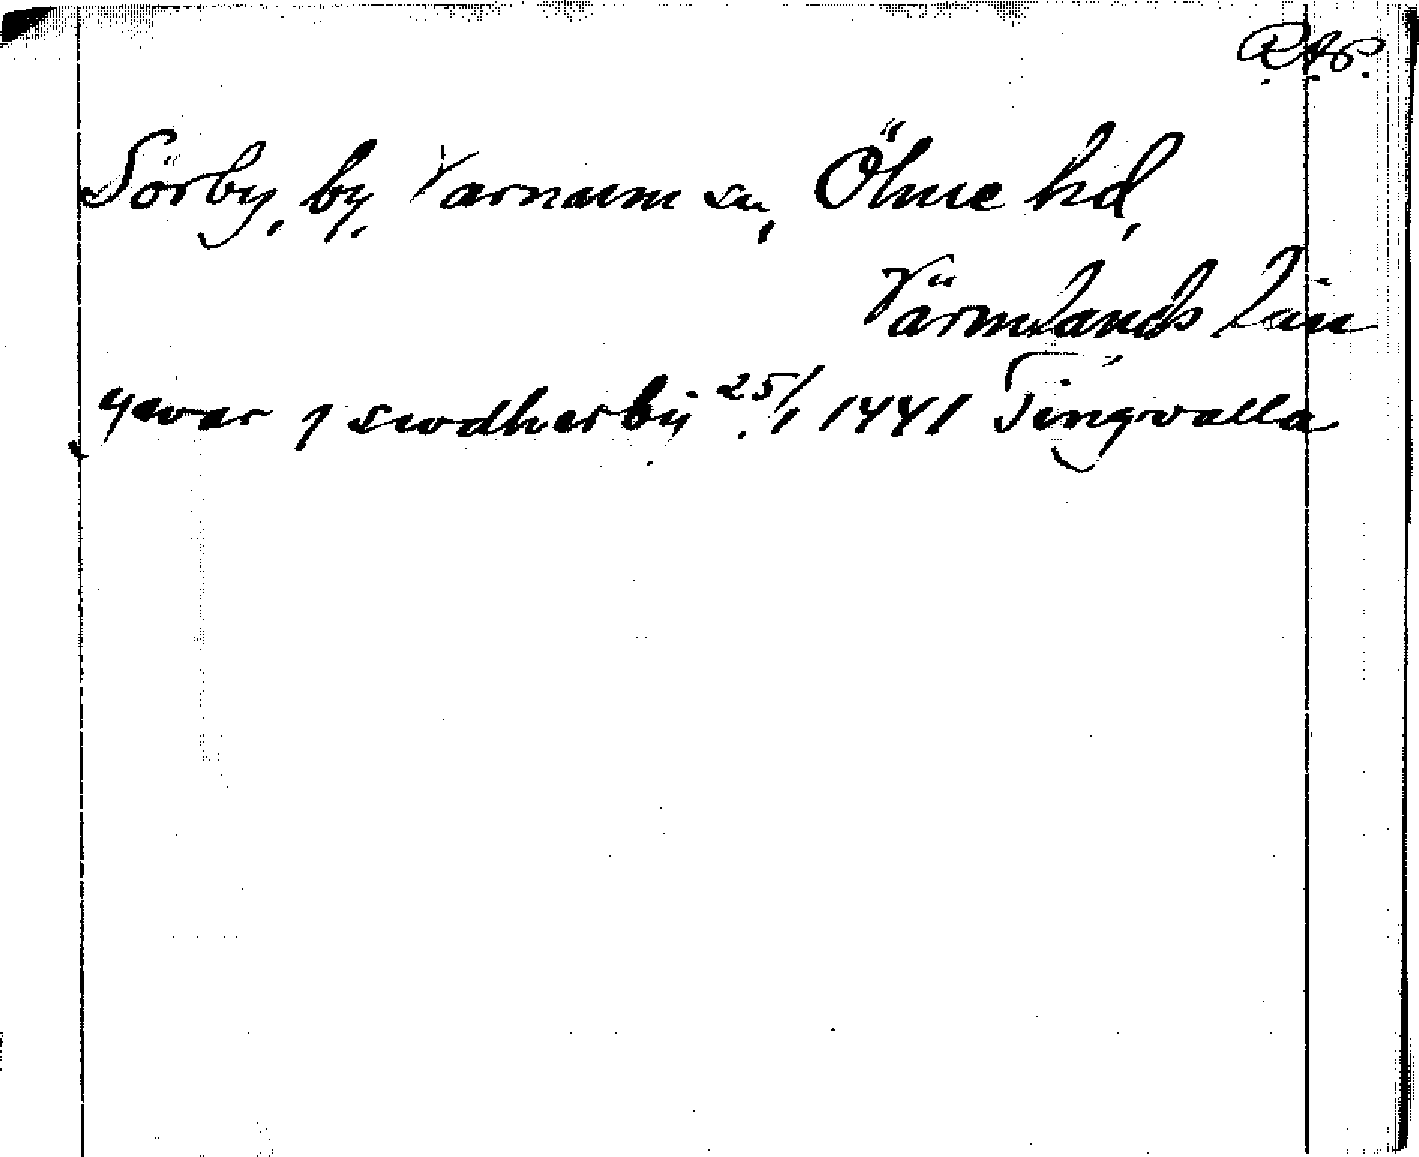 R.A.P.
Sörby, by, Varnum sn, Ölme hd,
Värmlands län
gwar j swdherbÿ 25/1 1441 Tingvalla